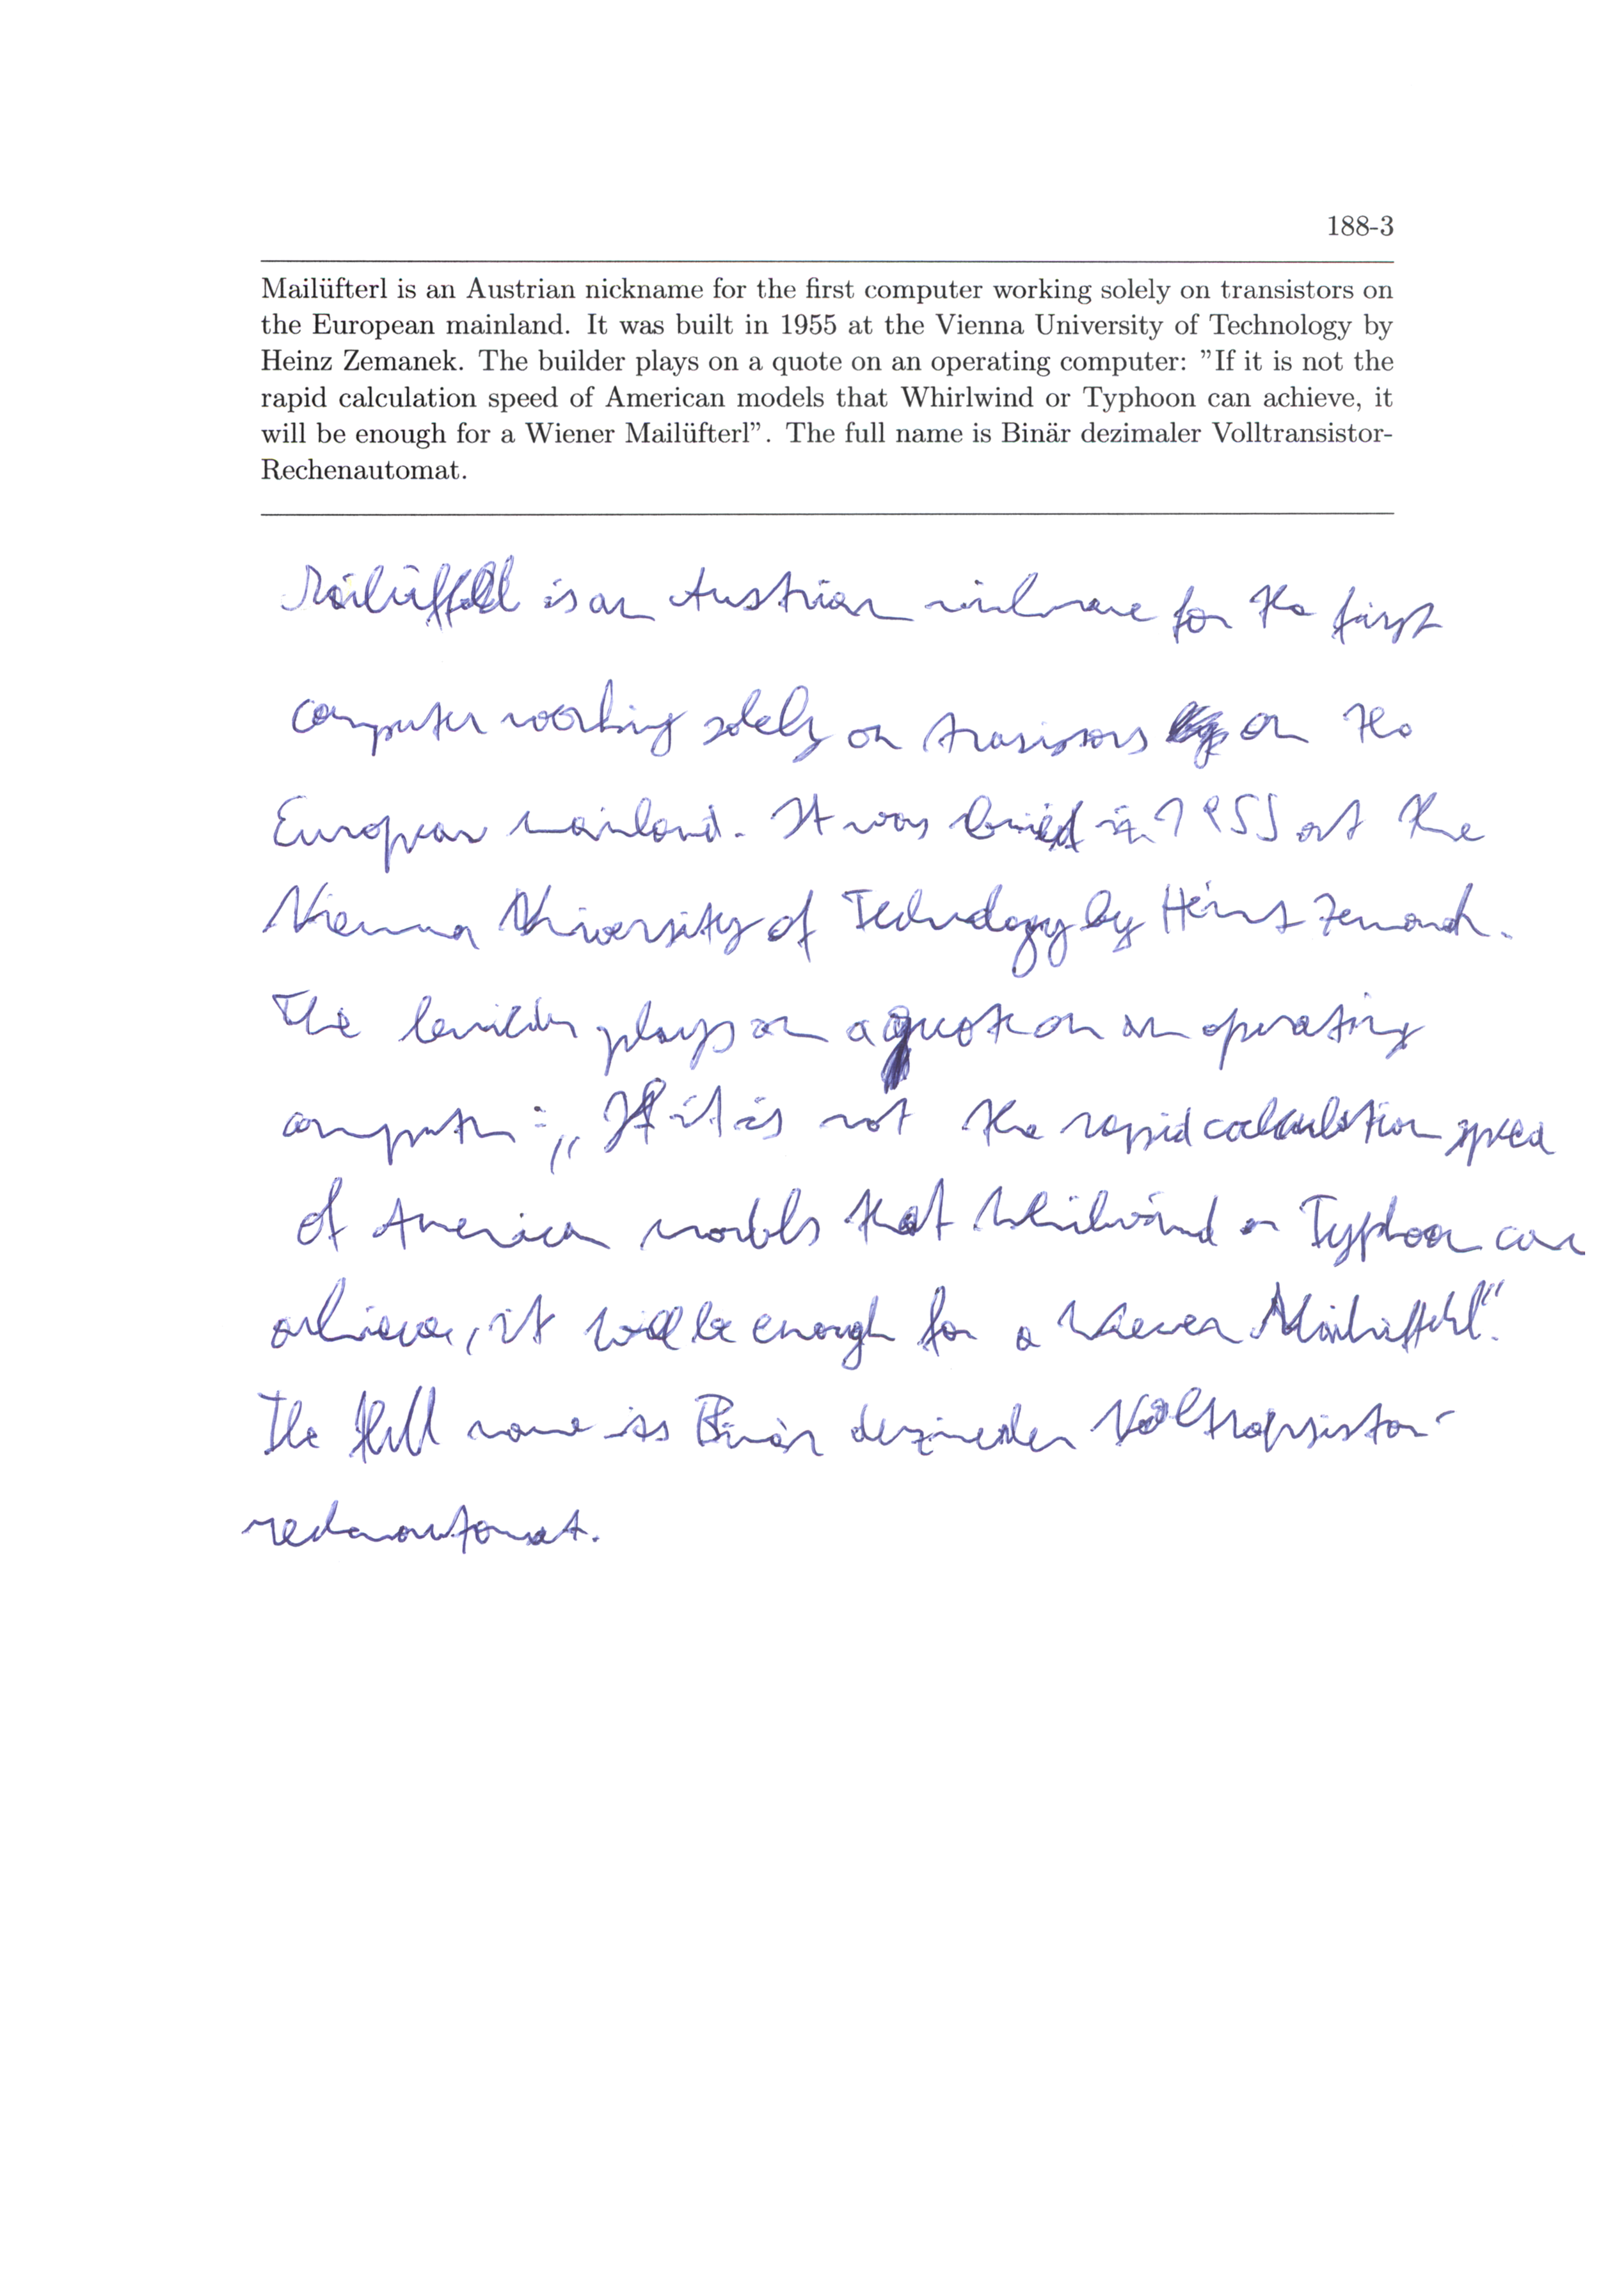 188-3
Mailüfterl is an Austrian nickname for the first computer working solely on transistors on
the European mainland. It was built in 1955 at the Vienna University of Technology by
Heinz Zemanek. The builder plays on a quote on an operating computer: "If it is not the
rapid calculation speed of American models that Whirlwind or Typhoon can achieve, it
will be enough for a Wiener Mailüfterl". The full name is Binär dezimaler Volltransistor-
Rechenautomat.
Mailüfterl is an Austrian nickname for the first
computer working solely on transistors on the
European mainland. It was build in 1955 at the
Vienna University of Technology by Heinz Zemanek.
The builder plays on a quote on an operating
computer: „If it is not the rapid calculation speed
of American models that Whirlwind or Typhoon can
achieve, it will be enough for a Wiener Mailüfterl".
The full name is Binär dezimaler Volltransistor-
rechenautomat.